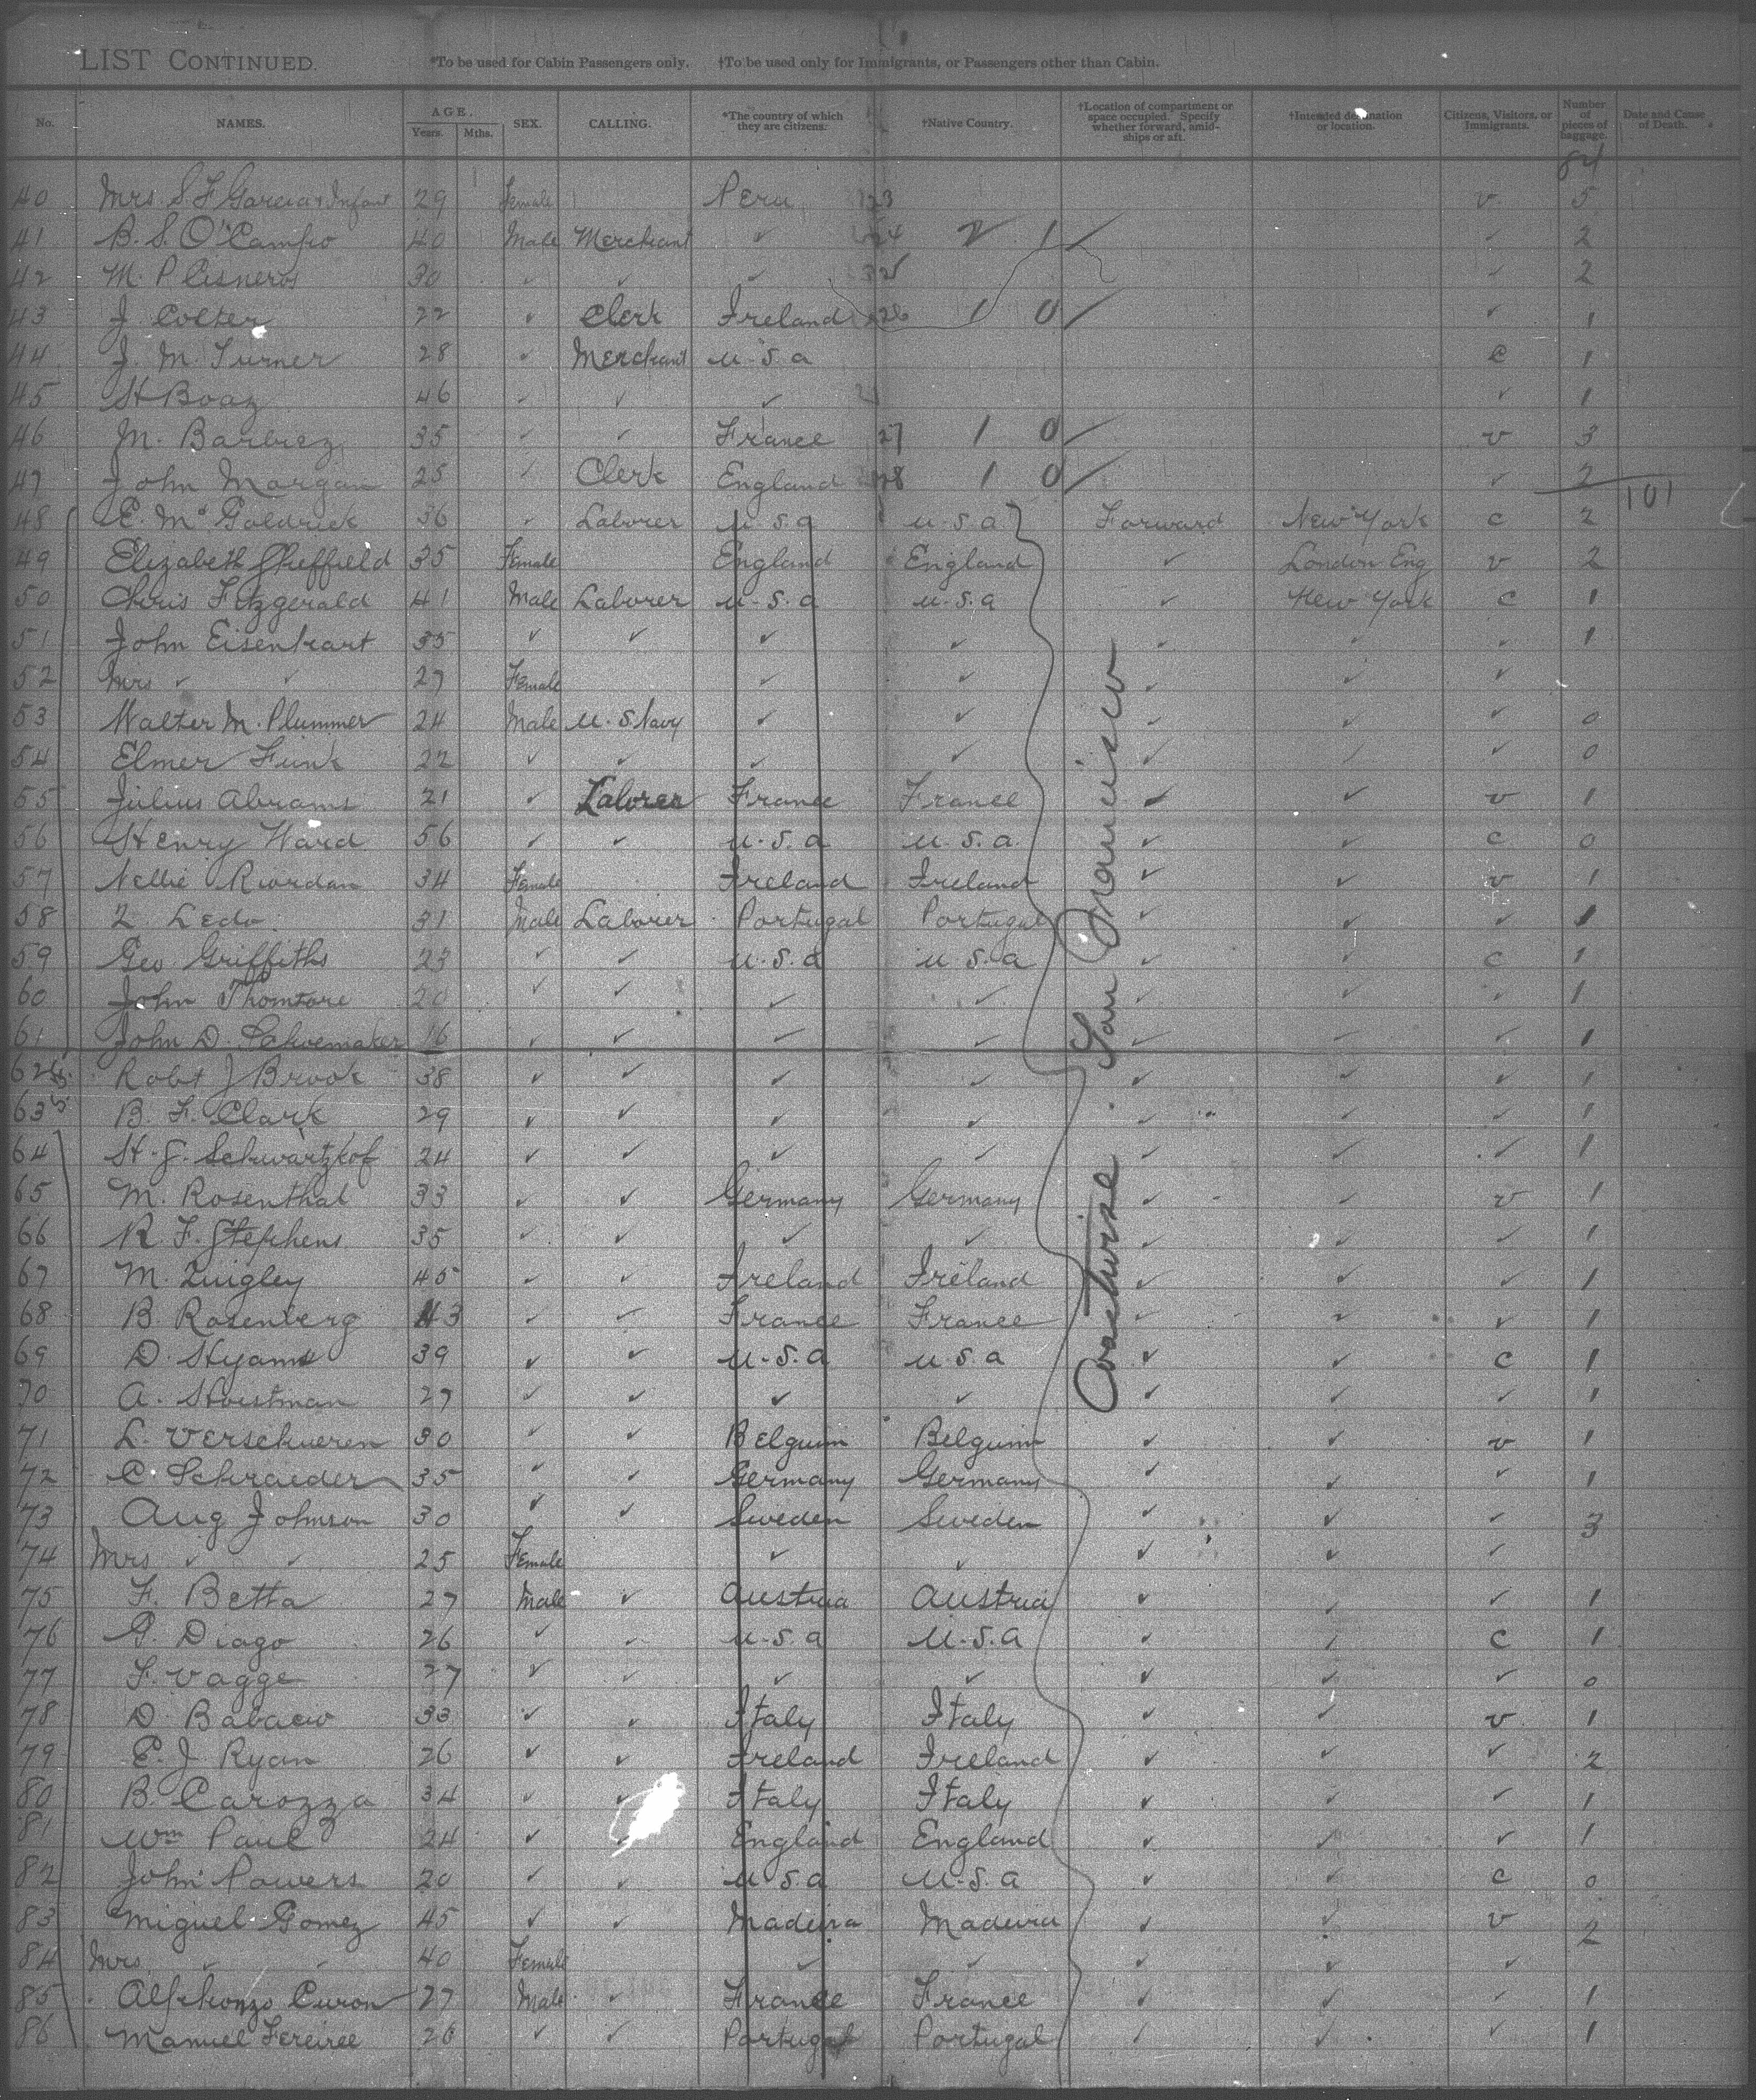 LIST CONTINUED. *To be used for Cabin Passengers only. †To be used only for Immigrants, or Passengers other than Cabin.
No. NAMES. AGE. Years. Mths. SEX. CALLING. *The country of which they are citizens. †Native Country. †Location of compartment or space occupied. Specify whether forward, amidships or aft. †Intended destination or location. Citizens, Visitors, or Immigrants. Number of pieces of baggage. Date and Cause of Death.
84
40 Mrs. S F Garcia & Infant 29 Female Peru 23 v 5
41 B. S. O'Campo 40 Male Merchant ✓ 24 2 1 ✓ 2
42 M. P Cisneros 30 ✓ ✓ ✓ ✓ 2
43 J. Colter 22 ✓ Clerk Ireland 26 1 0 ✓ 1
44 J. M. Turner 28 ✓ Merchant U.S.a c 1
45 H Boaz 46 ✓ ✓ ✓ ✓ 1
46 M. Barbiez 35 ✓ ✓ France 27 1 0 v 3
47 John Morgan 25 ✓ Clerk England 28 1 0 ✓ 2
101
48 E. McGoldrick 36 ✓ Laborer U.S.a U.S.a Forward New York c 2
49 Elizabeth Sheffield 35 Female England England ✓ London Eng v 2
50 Chris Fitzgerald 41 Male Laborer U.S.a U.S.a ✓ New York c 1
51 John Eisenhart 35 ✓ ✓ ✓ ✓ ✓ ✓ ✓ 1
52 Mrs ✓ ✓ 27 Female ✓ ✓ ✓ ✓ ✓
53 Walter M. Plummer 24 Male U.S Navy ✓ ✓ ✓ ✓ ✓ 0
54 Elmer Funk 22 ✓ ✓ ✓ ✓ ✓ ✓ ✓ 0
55 Julius Abrams 21 ✓ Laborer France France ✓ ✓ v 1
56 Henry Ward 56 ✓ ✓ U.S.a U.S.a. ✓ ✓ c 0
57 Nellie Riordan 34 Female Ireland Ireland ✓ ✓ v 1
58 Z Ledo 31 Male Laborer Portugal Portugal ✓ ✓ ✓ 1
59 Geo. Griffiths 23 ✓ ✓ U.S.a U.S.a ✓ ✓ c 1
60 John Thomtore 20 ✓ ✓ ✓ ✓ ✓ ✓ ✓ 1
61 John D. Schoemaker 16 ✓ ✓ ✓ ✓ ✓ ✓ ✓ 1
62 Robt J Brook 38 ✓ ✓ ✓ ✓ ✓ ✓ ✓ 1
63 B. F. Clark 29 ✓ ✓ ✓ ✓ ✓ ✓ ✓ 1
64 H. J. Schwartzkof 24 ✓ ✓ ✓ ✓ ✓ ✓ ✓ 1
65 M. Rosenthal 33 ✓ ✓ Germany Germany ✓ ✓ v 1
66 R. F. Stephens 35 ✓ ✓ ✓ ✓ ✓ ✓ ✓ 1
67 M. Quigley 45 ✓ ✓ Ireland Ireland ✓ ✓ ✓ 1
68 B. Rosenberg 43 ✓ ✓ France France ✓ ✓ ✓ 1
69 D. Hyams 39 ✓ ✓ U.S.a U.S.a ✓ ✓ c 1
70 A. Horstman 27 ✓ ✓ ✓ ✓ ✓ ✓ ✓ 1
71 L. Verschueren 30 ✓ ✓ Belguim Belguim ✓ ✓ v 1
72 C. Schraeder 35 ✓ ✓ Germany Germany ✓ ✓ ✓ 1
73 Aug Johnson 30 ✓ ✓ Sweden Sweden ✓ ✓ ✓ 3
74 Mrs ✓ ✓ 25 Female ✓ ✓ ✓ ✓ ✓
75 F. Betta 27 Male ✓ Austria Austria ✓ ✓ ✓ 1
76 G. Diago 26 ✓ ✓ U.S.a U.S.a ✓ ✓ c 1
77 F. Vagge 27 ✓ ✓ ✓ ✓ ✓ ✓ ✓ 0
78 D. Babacio 33 ✓ ✓ Italy Italy ✓ ✓ v 1
79 E. J. Ryan 26 ✓ ✓ Ireland Ireland ✓ ✓ ✓ 2
80 B. Carozza 34 ✓ ✓ Italy Italy ✓ ✓ ✓ 1
81 Wm Paul 24 ✓ ✓ England England ✓ ✓ ✓ 1
82 John Powers 20 ✓ ✓ U.S.a U.S.a ✓ ✓ c 0
83 Miguel Gomez 45 ✓ ✓ Madeira Madeira ✓ ✓ v 2
84 Mrs ✓ ✓ 40 Female ✓ ✓ ✓ ✓ ✓
85 Alfhonzo Curon 27 Male ✓ France France ✓ ✓ ✓ 1
86 Manuel Fereiree 26 ✓ ✓ Portugal Portugal ✓ ✓ ✓ 1
Coastwise. San Francisco